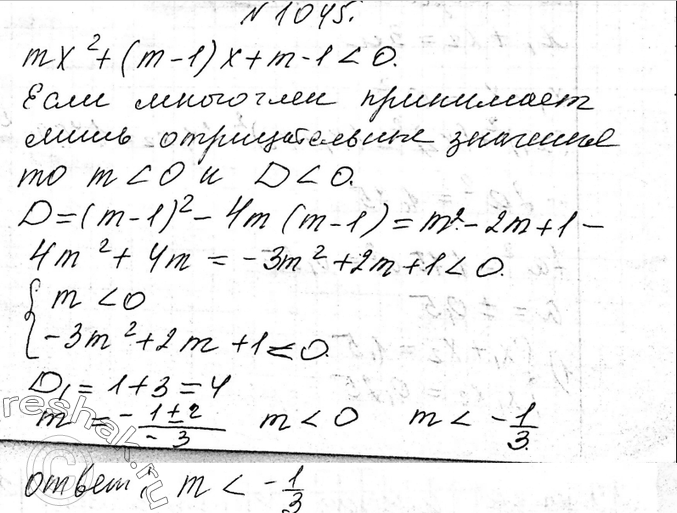 №1045.
mx² + (m-1)x + m-1 < 0.
Если многочлен принимает
лишь отрицательные значение
то m < 0 и D < 0.
D = (m-1)² - 4m(m-1) = m² - 2m + 1 -
4m² + 4m = -3m² + 2m + 1 < 0.
{ m < 0
-3m² + 2m + 1 < 0.
D₁ = 1 + 3 = 4
m = (-1 ± 2)/(-3) m < 0 m < -1/3.
ответ: m < -1/3
reshak.ru